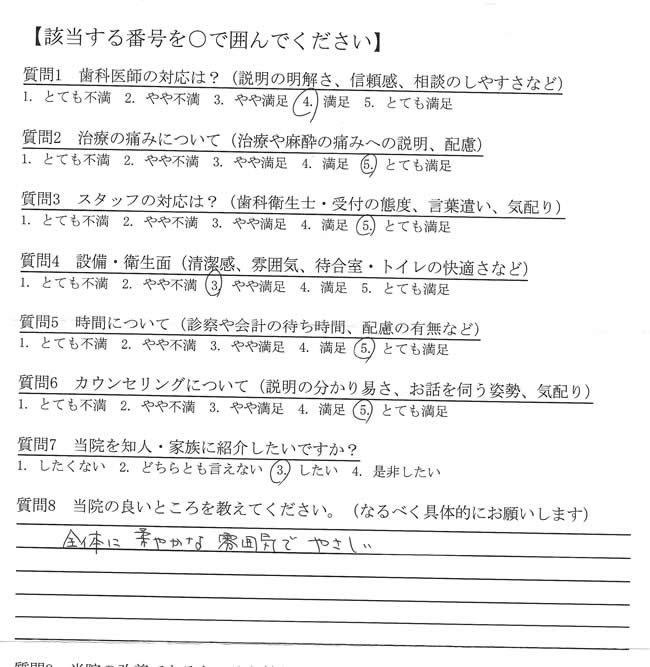 【該当する番号を〇で囲んでください】
質問1 歯科医師の対応は？（説明の明解さ、信頼感、相談のしやすさなど）
1. とても不満 2. やや不満 3. やや満足 4. 満足 5. とても満足
質問2 治療の痛みについて（治療や麻酔の痛みへの説明、配慮）
1. とても不満 2. やや不満 3. やや満足 4. 満足 5. とても満足
質問3 スタッフの対応は？（歯科衛生士・受付の態度、言葉遣い、気配り）
1. とても不満 2. やや不満 3. やや満足 4. 満足 5. とても満足
質問4 設備・衛生面（清潔感、雰囲気、待合室・トイレの快適さなど）
1. とても不満 2. やや不満 3. やや満足 4. 満足 5. とても満足
質問5 時間について（診察や会計の待ち時間、配慮の有無など）
1. とても不満 2. やや不満 3. やや満足 4. 満足 5. とても満足
質問6 カウンセリングについて（説明の分かり易さ、お話を伺う姿勢、気配り）
1. とても不満 2. やや不満 3. やや満足 4. 満足 5. とても満足
質問7 当院を知人・家族に紹介したいですか？
1. したくない 2. どちらとも言えない 3. したい 4. 是非したい
質問8 当院の良いところを教えてください。（なるべく具体的にお願いします）
全体に 柔やかな 雰囲気で やさしい